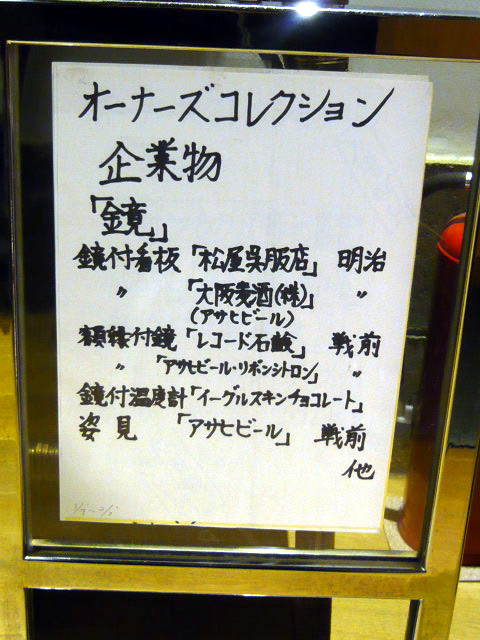 オーナーズコレクション
企業物
「鏡」
鏡付看板「松屋呉服店」 明治
〃 「大阪麦酒(株)」 〃
(アサヒビール)
額縁付鏡「レコード石鹸」 戦前
〃 「アサヒビール・リボンシトロン」 〃
鏡付温度計「イーグルスキンチョコレート」
姿見 「アサヒビール」 戦前
他